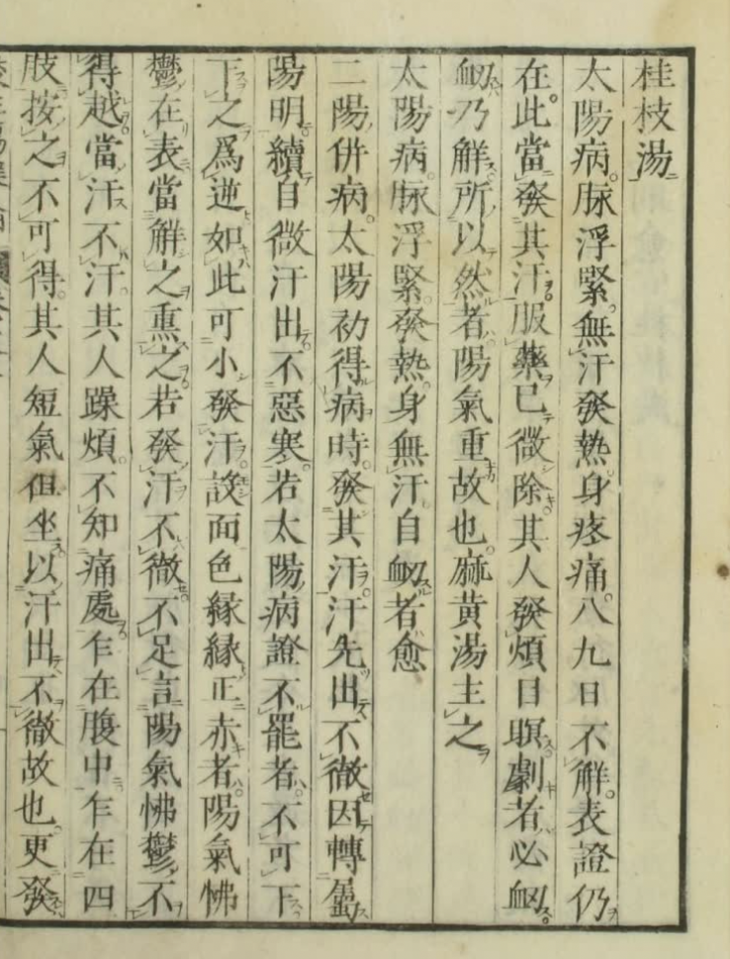 桂枝湯
太陽病脉浮緊無汗發熱身疼痛八九日不解表證仍
在此當發其汗服藥已微除其人發煩目瞑劇者必衂
衂乃解所以然者陽氣重故也麻黄湯主之
太陽病脉浮緊發熱身無汗自衂者愈
二陽併病太陽初得病時發其汗汗先出不徹因轉屬
陽明續自微汗出不惡寒若太陽病證不罷者不可下
下之爲逆如此可小發汗設面色縁縁正赤者陽氣怫
鬱在表當解之熏之若發汗不徹不足言陽氣怫鬱不
得越當汗不汗其人躁煩不知痛處乍在腹中乍在四
肢按之不可得其人短氣但坐以汗出不徹故也更發